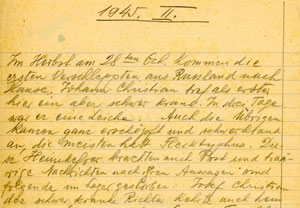 1945. II.
Im Herbst am 28 ten Okt. kommen die
ersten Verschleppten aus Russland nach
Hause. Johann Christian traf als erster
hier ein aber schwer krank. In drei Tage
war er eine Leiche. Auch die Übrigen
kamen ganz erschöpft und schwerkrank
an, die meisten hatt Flecktyphus. Die
se Heimkehrer brachten auch Post und trau
rige Nachrichten nach Hause sind
folgende im Lager gestorben: Josef Christian
der schwer kranke Richter, kehrt auch heim